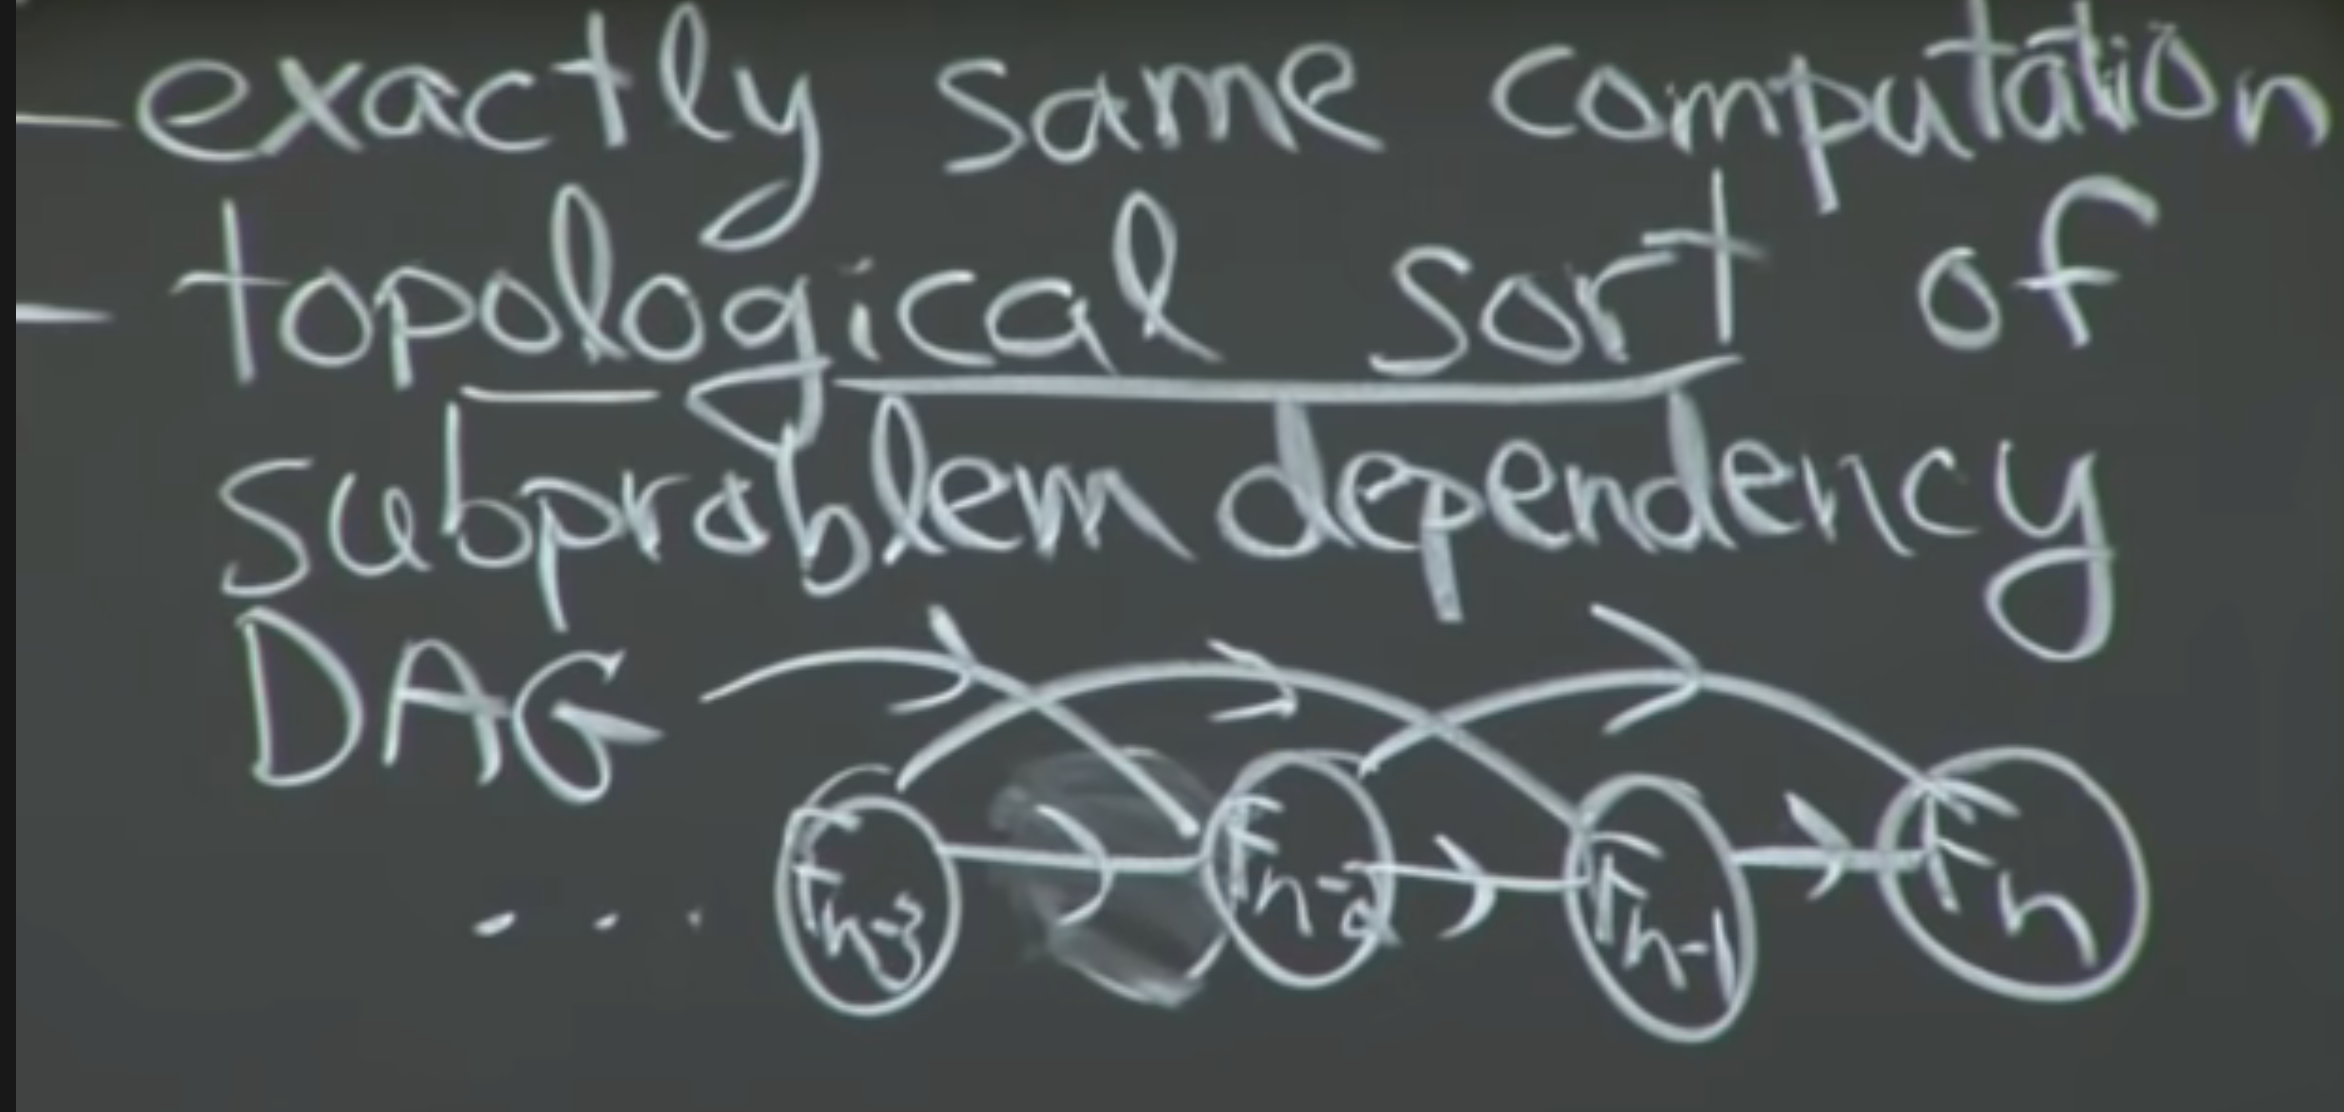 - exactly same computation
- topological sort of
subproblem dependency
DAG
... F_{n-3} F_{n-2} F_{n-1} F_n